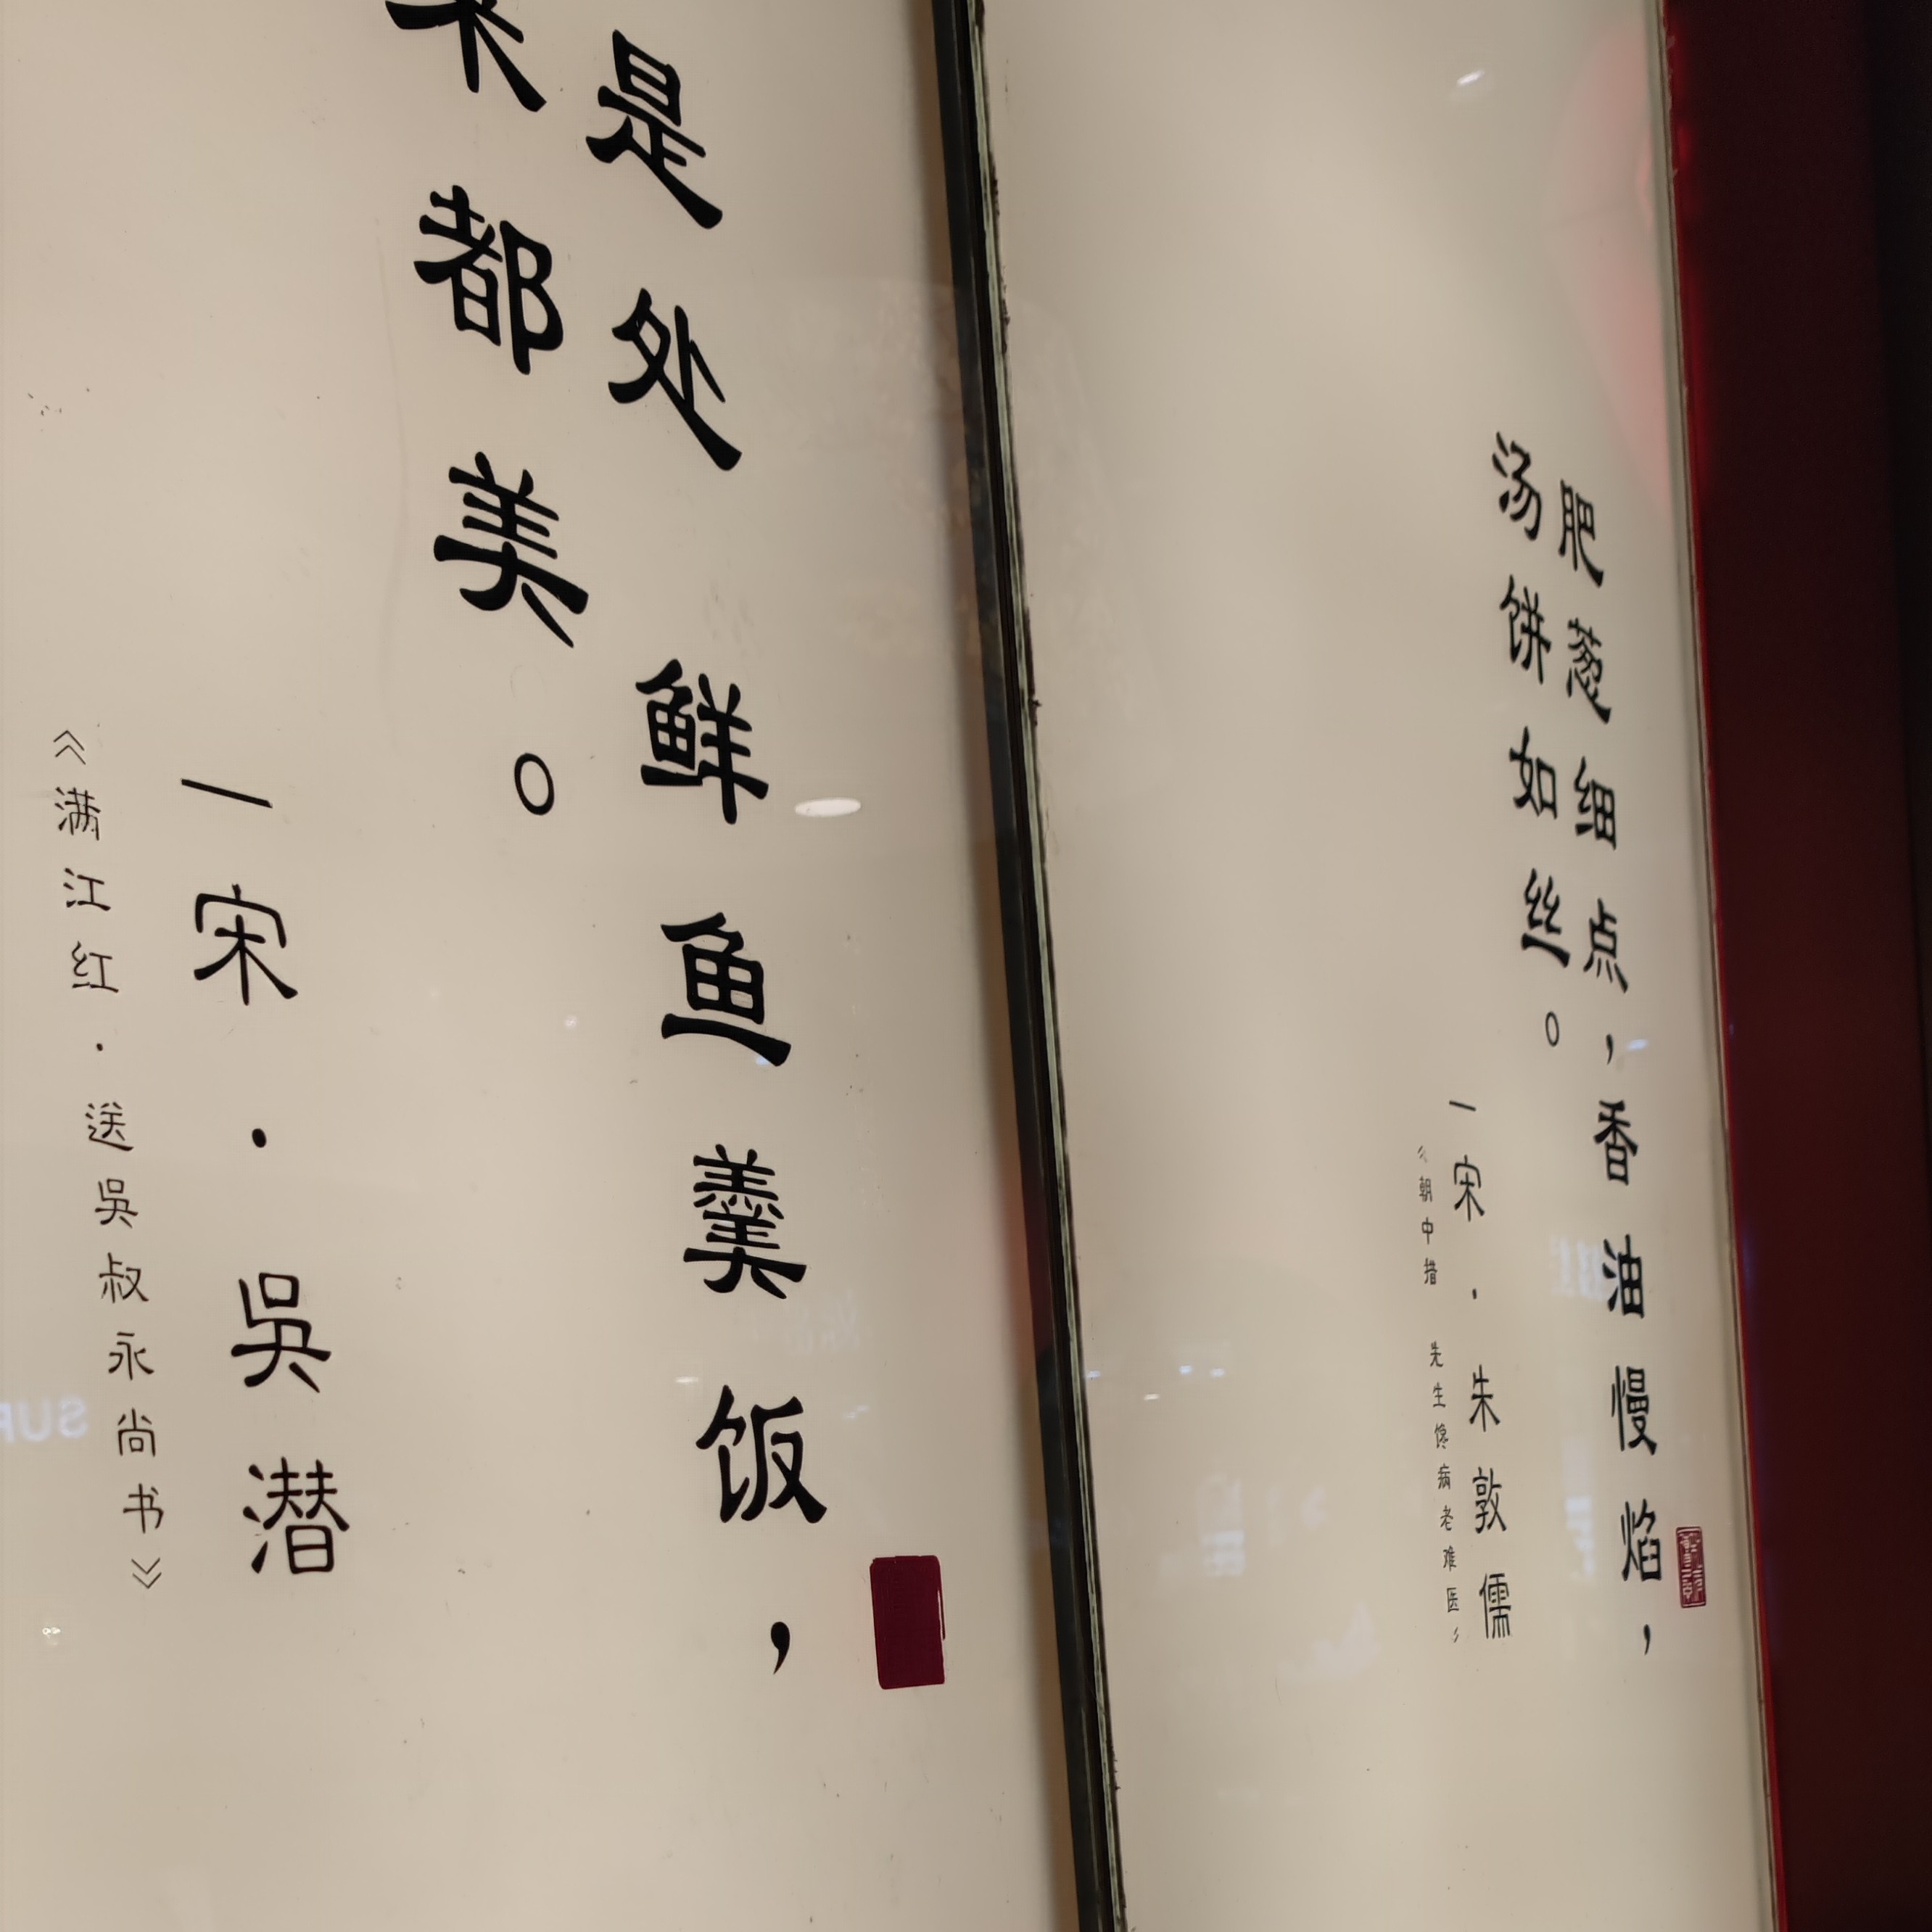 肥葱细点，香油慢焰，
汤饼如丝。
—宋·朱敦儒
《朝中措 先生馋病老难医》
是处鲜鱼羹饭，
都美。
—宋·吳潜
《满江红·送吳叔永尚书》